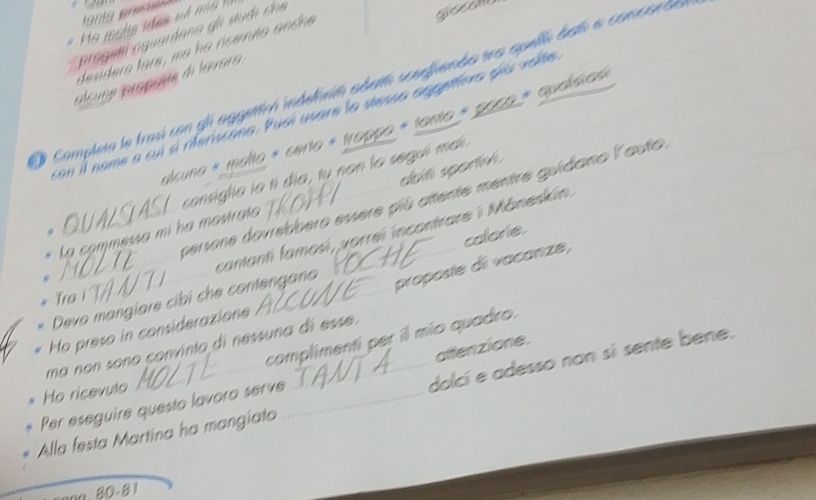 Ho molte idee sui miei
progetti riguardano gli studi che
desidero fare, ma ho ricevuto anche
alcune proposte di lavoro.
Completa le frasi con gli aggettivi indefiniti adatti scegliendo tra quelli dati e
con il nome a cui si riferiscono. Puoi usare lo stesso aggettivo più volte.
alcuno • molto • certo • troppo • tanto • poco • qualsiasi
• QUALSIASI consiglio io ti dia, tu non lo segui mai.
• La commessa mi ha mostrato TROPPI abiti sportivi.
• MOLTE persone dovrebbero essere più attente mentre guidano l'auto.
• Tra i TANTI cantanti famosi, vorrei incontrare i Måneskin.
• Devo mangiare cibi che contengano POCHE calorie.
• Ho preso in considerazione ALCUNE proposte di vacanze,
ma non sono convinto di nessuna di esse.
• Ho ricevuto MOLTE complimenti per il mio quadro.
• Per eseguire questo lavoro serve TANTA attenzione.
• Alla festa Martina ha mangiato dolci e adesso non si sente bene.
80-81